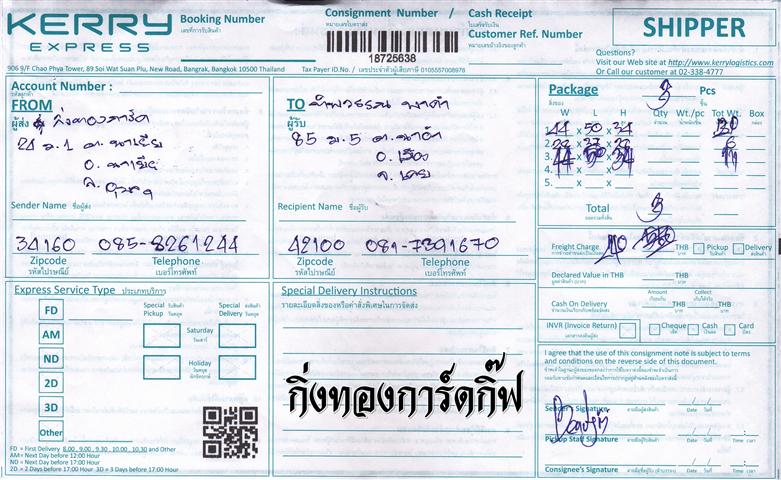 KERRY
EXPRESS
Booking Number
เลขที่การรับสินค้า
Consignment Number / Cash Receipt
หมายเลขใบตราส่ง / ใบเสร็จรับเงิน
Customer Ref. Number
หมายเลขอ้างอิงของลูกค้า
18725638
SHIPPER
906 9/F Chao Phya Tower, 89 Soi Wat Suan Plu, New Road, Bangrak, Bangkok 10500 Thailand
Tax Payer ID.No. / เลขประจำตัวผู้เสียภาษี 0105557008976
Questions?
Visit our Web site at http://www.kerrylogistics.com
Or Call our customer at 02-338-4777
Account Number :
รหัสลูกค้า
FROM
ผู้ส่ง กิ่งทองการ์ด
24 ม.1 ต.นาเยีย
อ.นาเยีย
Sender Name ชื่อผู้ส่ง
34160 085-8261244
Zipcode Telephone
รหัสไปรษณีย์ เบอร์โทรศัพท์
TO
ผู้รับ
85 ม.5 ต.นาอ้อ
อ.เมือง
จ.เลย
Recipient Name ชื่อผู้รับ
42100 081-7391670
Zipcode Telephone
รหัสไปรษณีย์ เบอร์โทรศัพท์
Package 3 Pcs
สิ่งของ ชิ้น
W L H Qty Wt./pc Tot Wt. Box
จำนวน น้ำหนัก/ชิ้น กล่อง
1. 44 x 50 x 34
2.
3.
4. x x
5. x x
Total 3
Freight Charge THB Pickup Delivery
Declared Value in THB THB
Amount Collect
Cash On Delivery THB
INVR (Invoice Return) Cheque Cash Card
เช็ค เงินสด บัตร
Express Service Type ประเภทบริการ
Special Pickup Special Delivery
FD
AM
ND
2D
3D
Other
Saturday
วันเสาร์
Holiday
วันหยุดนักขัตฤกษ์
FD = First Delivery 8.00 , 9.00 , 9.30 , 10.00 , 10.30 and Other
AM= Next Day before 12:00 Hour
ND = Next Day before 17:00 Hour
2D = 2 Days before 17:00 Hour 3D = 3 Days before 17:00 Hour
Special Delivery Instructions
รายละเอียดสิ่งของหรือคำสั่งพิเศษในการจัดส่ง
กิ่งทองการ์ดกิ๊ฟ
I agree that the use of this consignment note is subject to terms
and conditions on the reverse side of this document.
Sender's Signature ลายมือชื่อผู้ส่งสินค้า Date วันที่
Pickup Staff Signature Date วันที่ Time เวลา
Consignee's Signature Date วันที่ Time เวลา